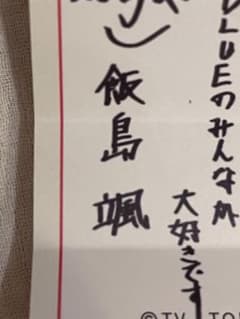 LUEのみんなが
大好きです
飯島 颯
©TV TO